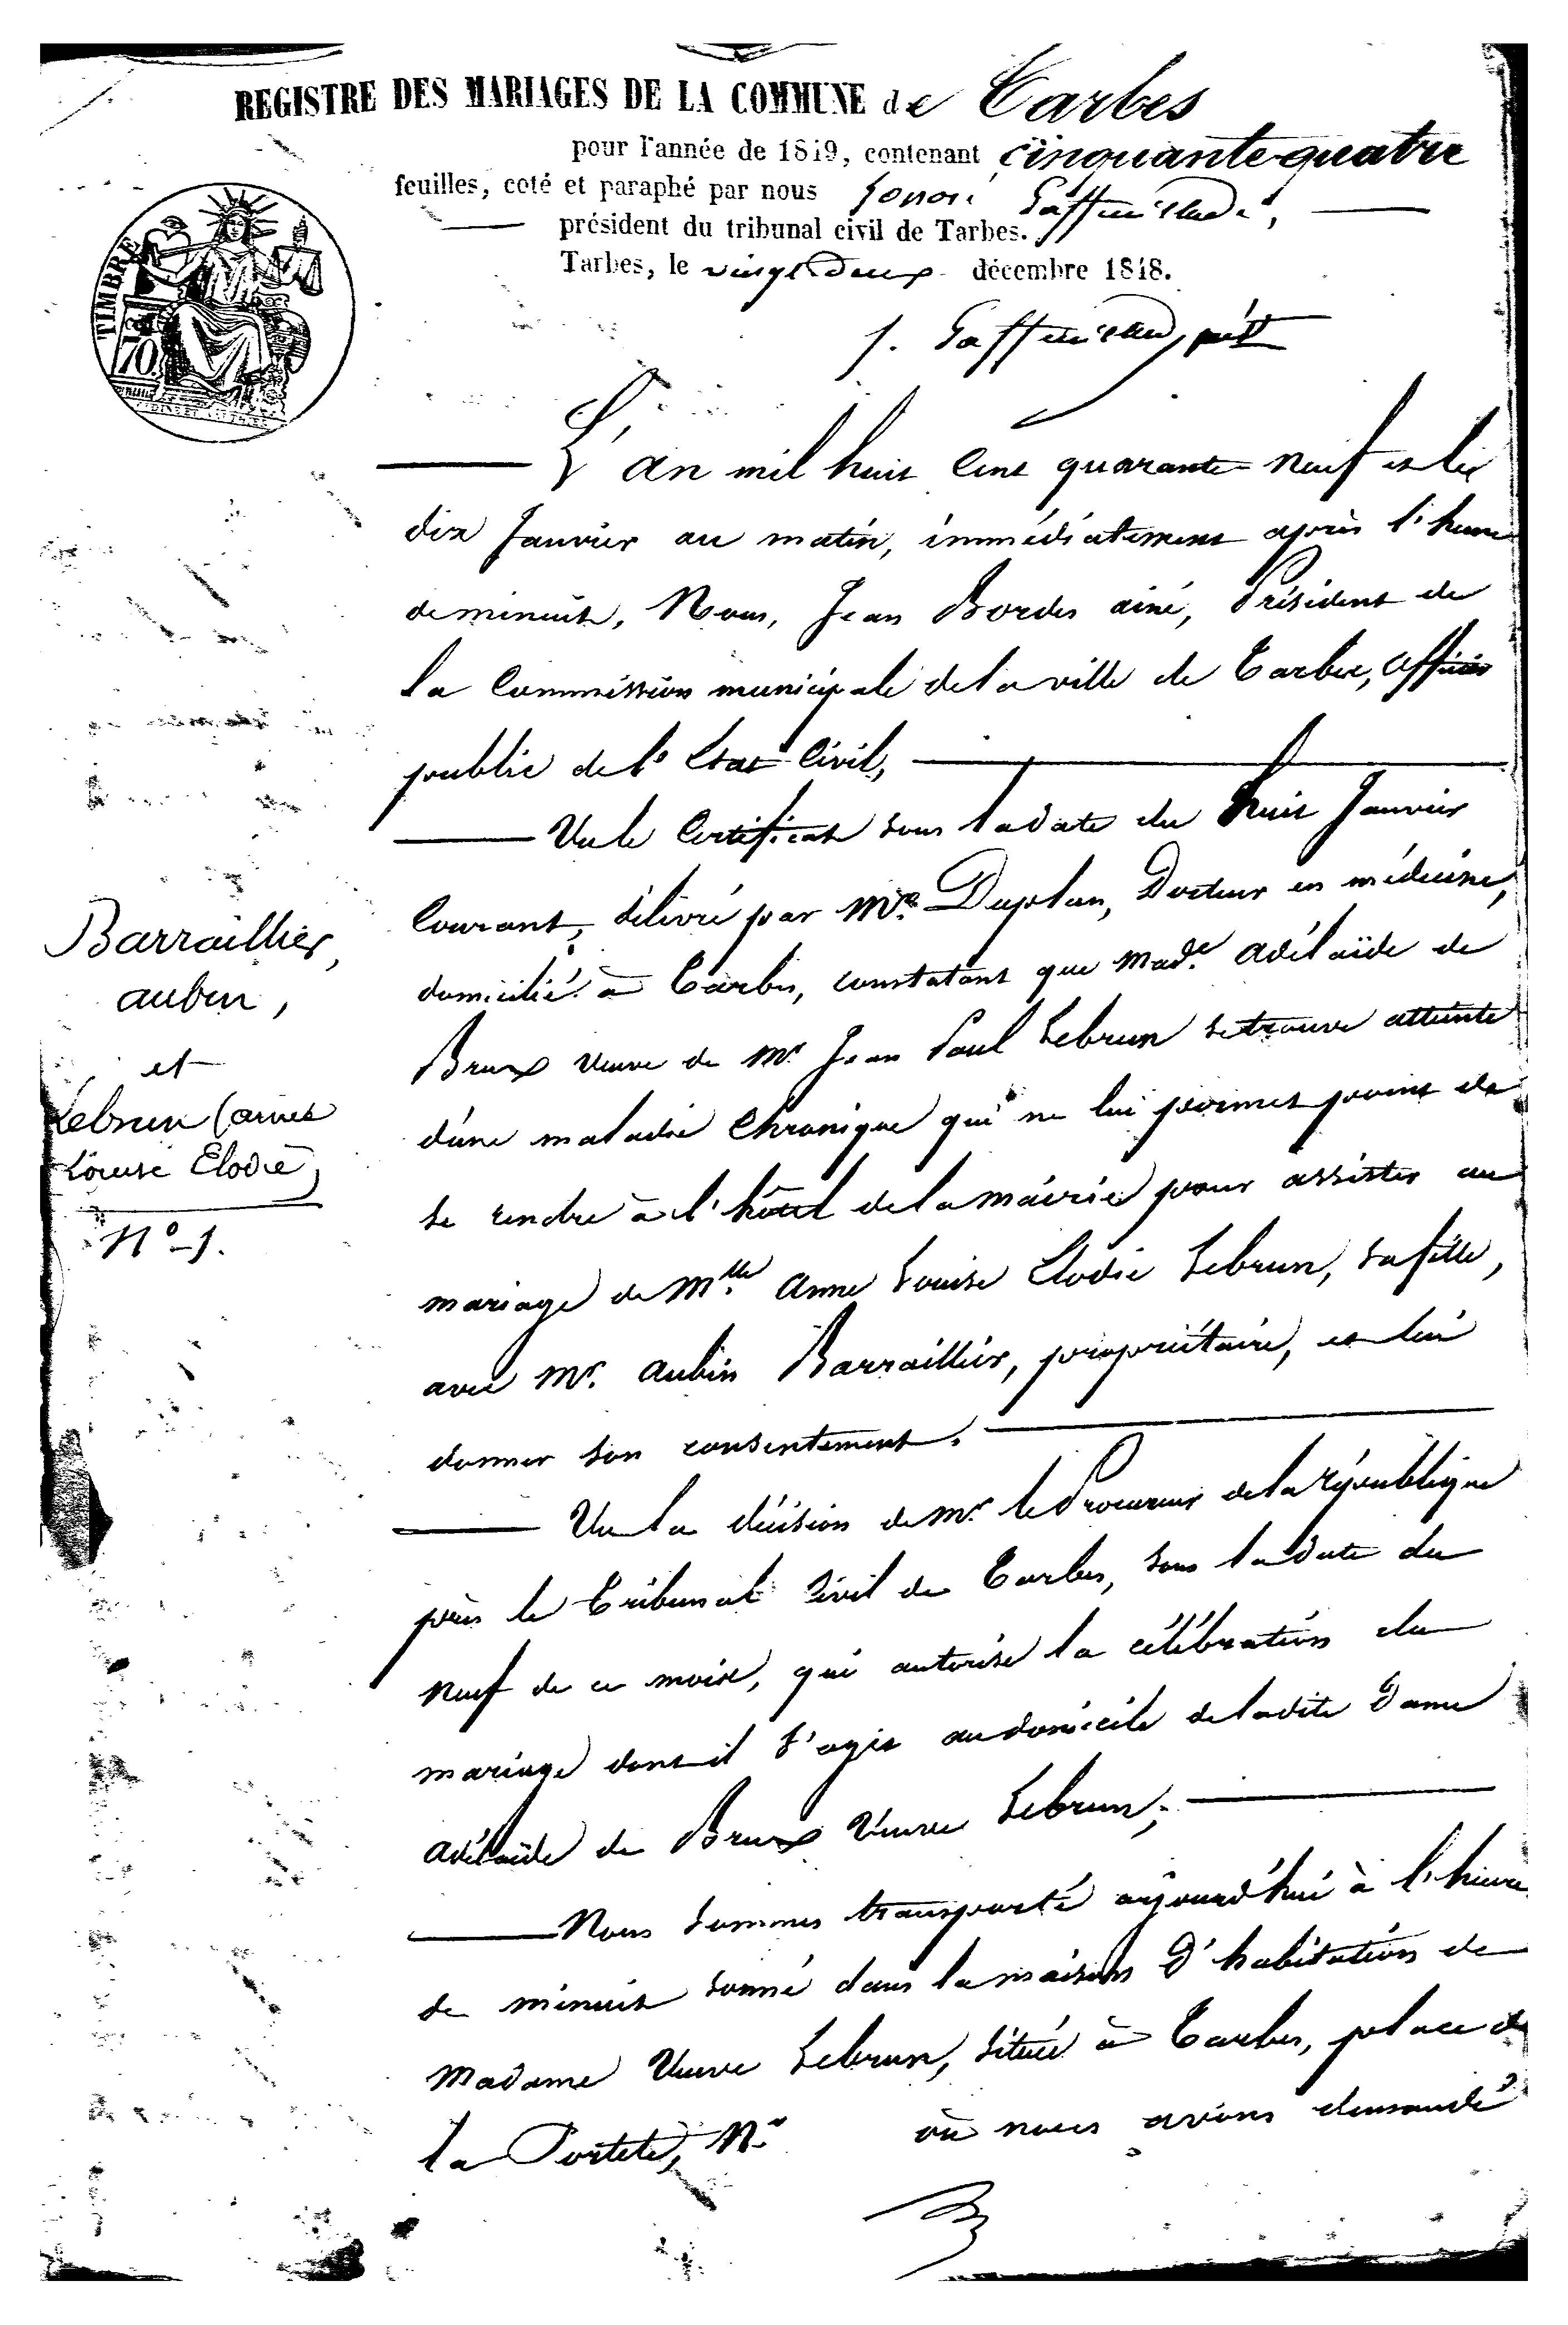 REGISTRE DES MARIAGES DE LA COMMUNE de Tarbes
pour l'année de 1849, contenant cinquante-quatre
feuilles, coté et paraphé par nous
président du tribunal civil de Tarbes.
Tarbes, le vingt deux décembre 1848.
TIMBRE
70
L'an mil huit Cent quarante-neuf et le
dix Janvier au matin, immédiatement après l'heure
de minuit, Nous, Jean Bordes ainé, Président de
la Commission municipale de la ville de Tarbes, officier
public de l'Etat Civil,
Vu le Certificat sous la date du huit Janvier
Courant, délivré par Mr. Duplan, Docteur en médecine,
domicilié à Tarbes, constatant que Made. adélaïde de
Brux veuve de Mr. Jean Paul Lebrun se trouve atteinte
d'une maladie Chronique qui ne lui permet point de
se rendre à l'hôtel de la mairie pour assister au
mariage de Mlle. Anne Louise Elodie Lebrun, sa fille,
avec Mr. Aubin Barraillier, propriétaire, et lui
donner son consentement.
Vu la décision de Mr. le Procureur de la république
près le Tribunal Civil de Tarbes, sous la date du
neuf de ce mois, qui autorise la célébration du
mariage dont il s'agit au domicile de ladite Dame
Adélaïde de Brux Veuve Lebrun;
Nous sommes transporté aujourd'hui à l'heure
de minuit sonné dans la maison d'habitation de
Madame Veuve Lebrun, située à Tarbes, place de
la Portete, N.° où nous avons demandé
Barraillier,
aubin,
et
Lebrun (anne
Louise Elodie)
N° 1.